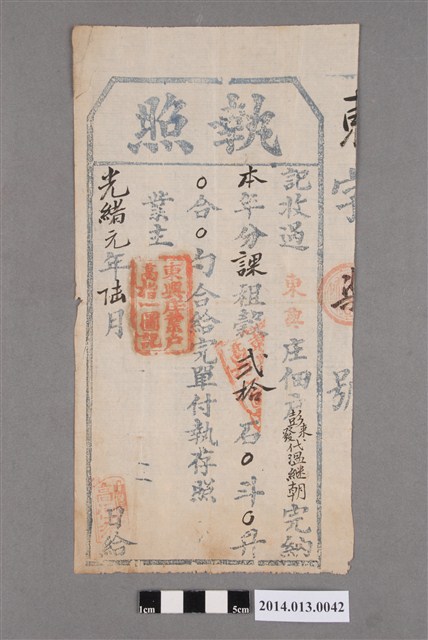 東字 號
執照
記收過東興庄佃彭東發代溫繼朝完納
本年分課租穀弍拾石0斗0升
0合0勺合給完單付執存照
業主
東興庄業戶
圖記
光緒元年陆月 日給
1cm 5cm
2014.013.0042